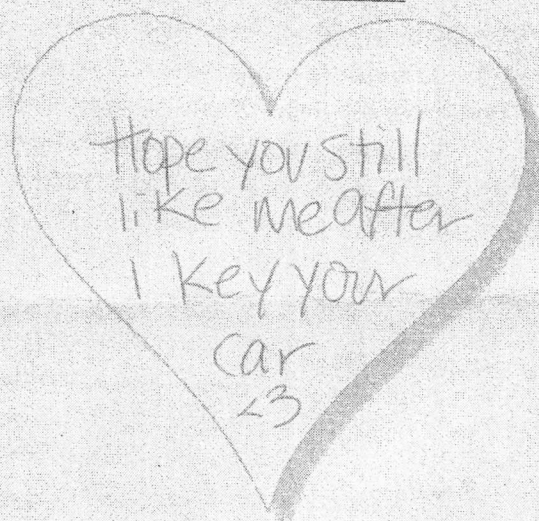 Hope you still
like me after
I key your
car
<3